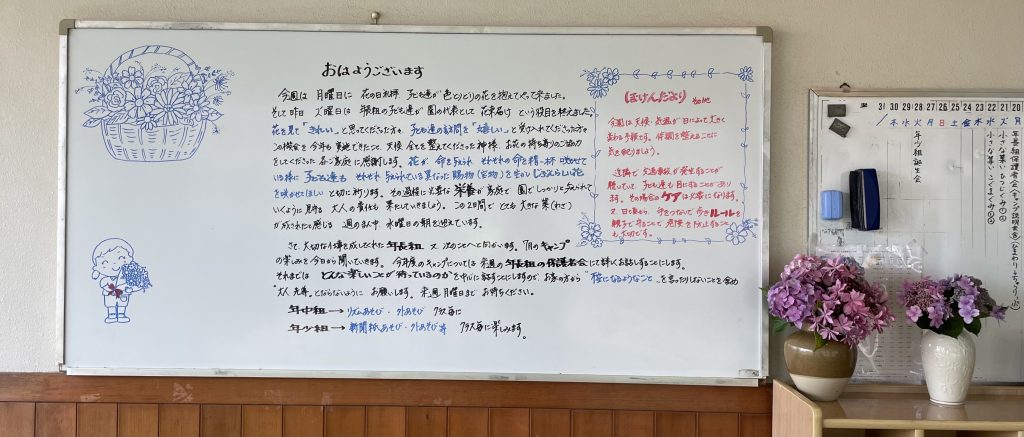 おはようございます
今週は 月曜日に 花の日礼拝 子ども達が色とりどりの花を抱えてやって来ました。
そして昨日 火曜日は 年長組の子ども達が 園の代表として 花束届け という役目を終えました。
花を見て「きれい。」と思ってくださった方々、子ども達の訪問を"嬉しい。"と受け入れてくださった方々
この機会を今年も実施できたこと、天候 全てを整えてくださった神様、お花の持ち寄りのご協力を
してくださった 各ご家庭に感謝します。花が 命を与えられ それぞれの命を精一杯 咲かせて
いる様に 子ども達も それぞれ 与えられている異なった 賜物(宝物)を生かし じぶんらしい花
を咲かせてほしい と切に祈ります。その過程に必要な 栄養が 家庭で 園で しっかりと与えられて
いくように 見守る 大人の責任も 果たしていきましょう。この2日間で とても 大きな業(わざ)
が成されたと感じる 週のなか 水曜日の朝を迎えています。
さて、大切な仕事を成しとげられた 年長組 又 次のことへと向かいます。7月のキャンプ
の楽しみを今日から聞いていきます。今年度のキャンプについては 来週の 年長組の保護者会にて詳しくお話しすることにします。
それまでは どんな"楽しいことが待っているのか"を中心に話すことにしますので、お家の方から
年中組 → リズムあそび・外あそび クラス毎に
年少組 → 新聞紙あそび・外あそび等 クラス毎に楽しみます。
ほけんだより
今週は天候・気温が日によって大きく
変わる予報です。体調を整えることに
気を配りましょう。
道路で 交通事故が発生することが
続いていて 子ども達も 目にすることがあり
ます。その場合は ケアが必要になります。
31 30 29 28 27 26 25 24 23 22 21 20
木 水 火 月 日 土 金 木 水 火 月
年少組誕生会
小さな集い ひつじぐみ
小さな集い こぐまぐみ
年長組保護者会(キャンプ説明